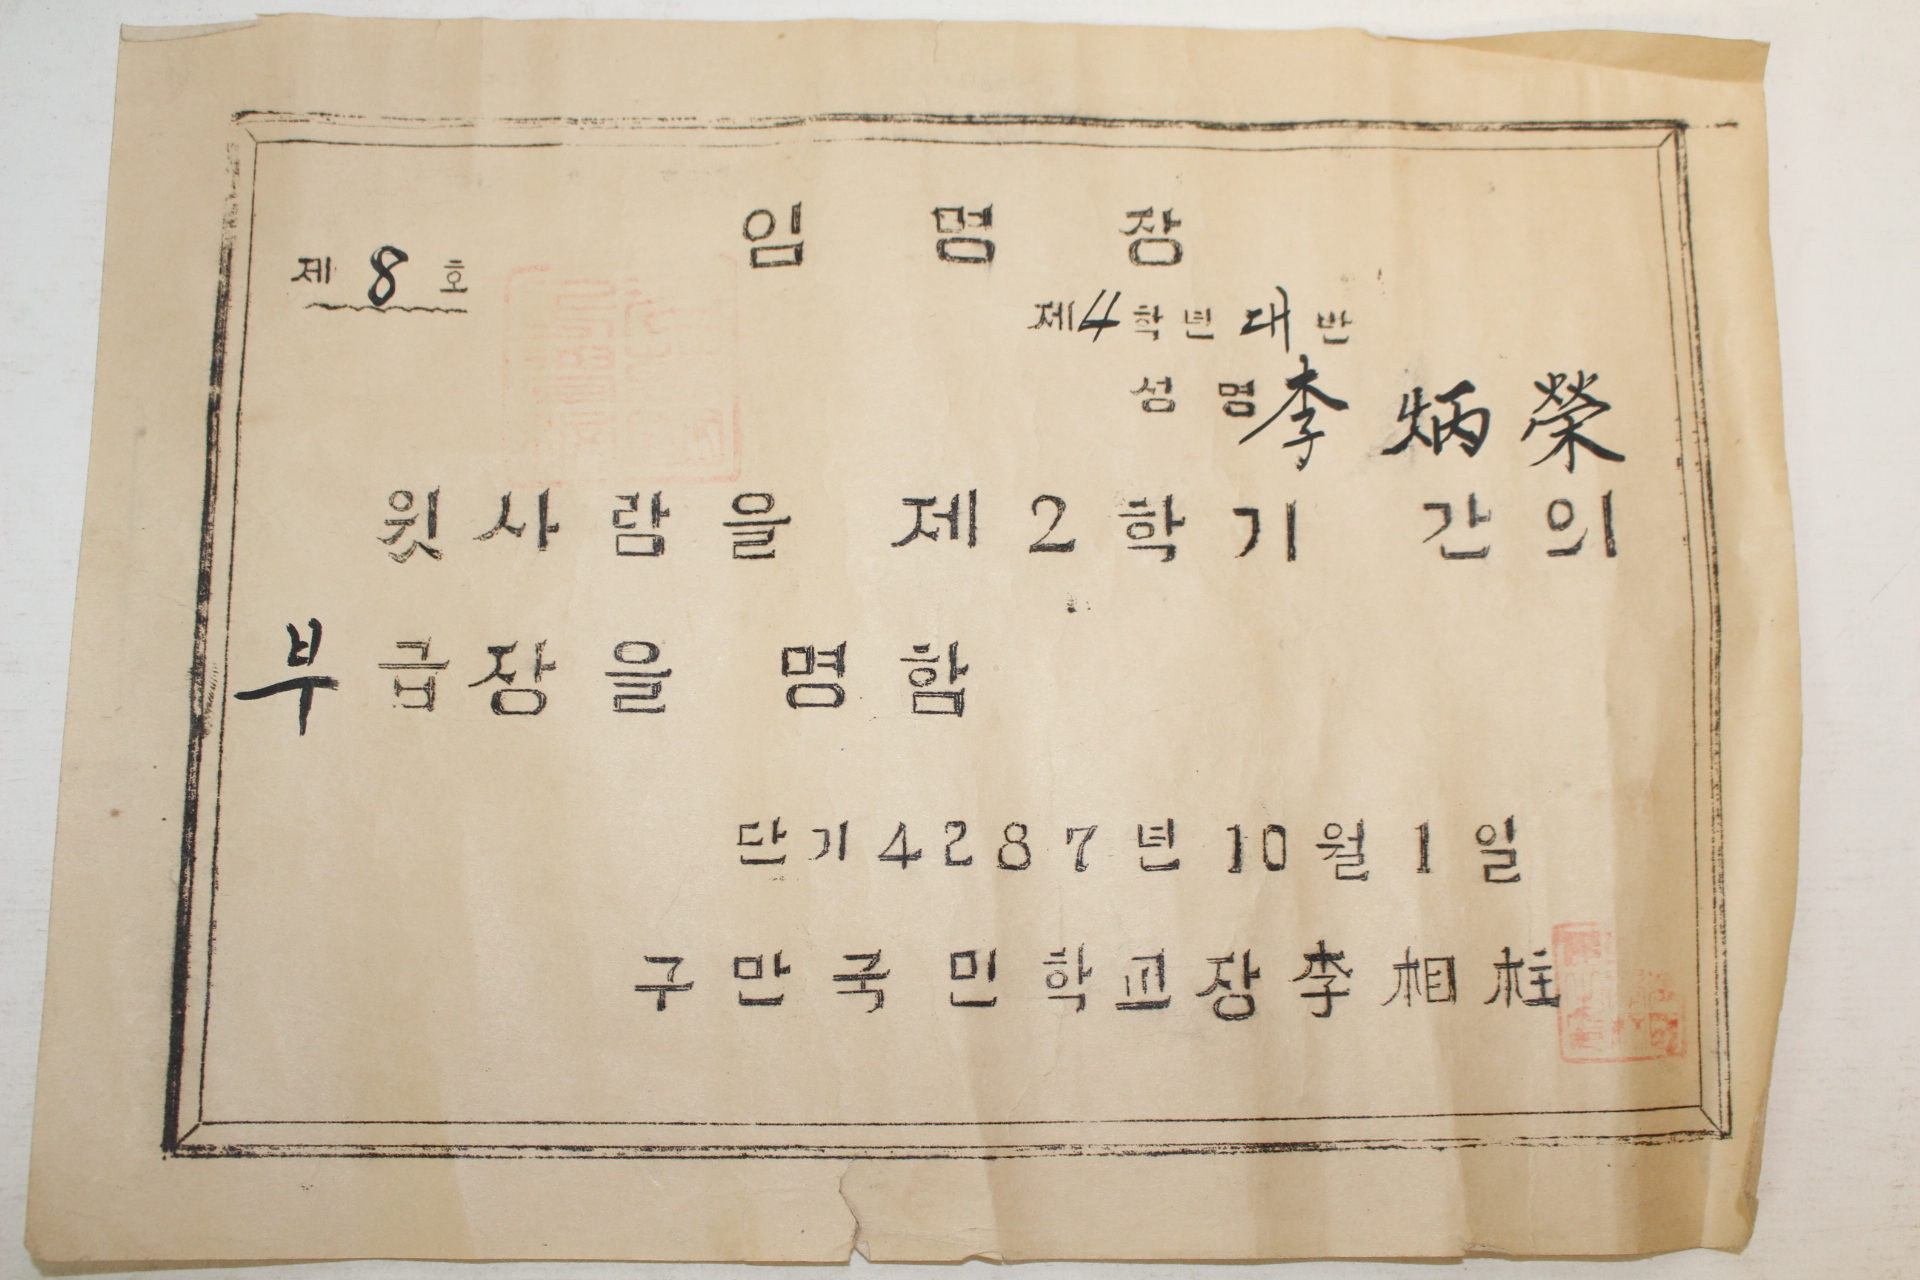 임명장
제 8 호
제4학년 대 반
성명 李炳榮
윗사람을 제2학기 간의
부급장을 명함
단기4287년 10월 1일
구만국민학교장 李相柱